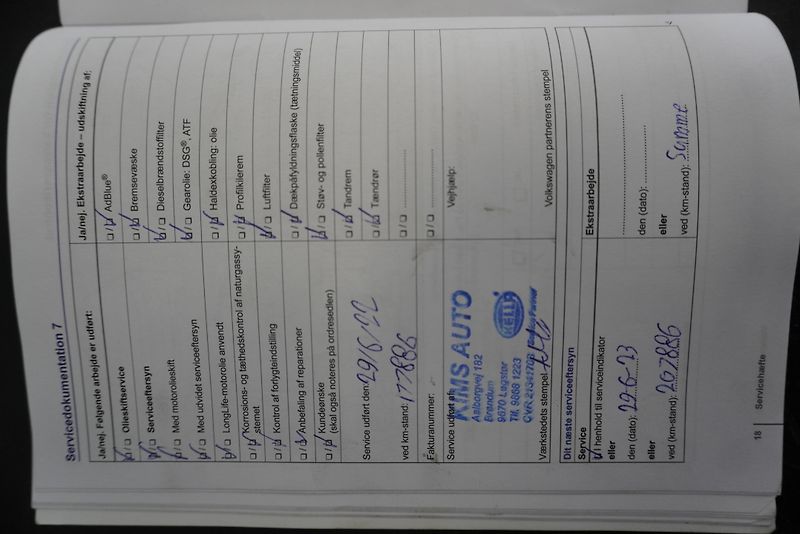 Servicedokumentation 7
Ja/nej. Følgende arbejde er udført:
Olieskiftservice
Serviceeftersyn
Med motorolieskift
Med udvidet serviceeftersyn
LongLife-motorolie anvendt
Korrosions- og tæthedskontrol af naturgassy-
stemet
Kontrol af forlygteindstilling
Anbefaling af reparationer
Kundeønske
(skal også noteres på ordresedlen)
Service udført den: 29/6/22
ved km-stand: 177886
Fakturanummer:
Service udført af:
KIMS AUTO
Aalborgvej 182
Brøndum
9670 Løgstør
Tlf. 9868 1223
HELLA
Værkstedets stempel
Ja/nej. Ekstraarbejde – udskiftning af:
AdBlue®
Bremsevæske
Dieselbrændstoffilter
Gearolie: DSG®, ATF
Haldexkobling: olie
Profilkilerem
Luftfilter
Dækpåfyldningsflaske (tætningsmiddel)
Støv- og pollenfilter
Tandrem
Tændrør
Vejhjælp:
Volkswagen partnerens stempel
Dit næste serviceeftersyn
Service
I henhold til serviceindikator
eller
den (dato): 29-6-23
eller
ved (km-stand): 207886
Ekstraarbejde
den (dato):
eller
ved (km-stand): Samme
18
Servicehæfte